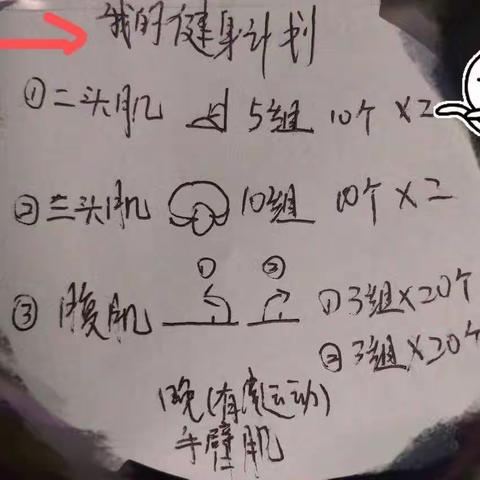 我的健身计划
①二头肌 5组 10个×2
②三头肌 10组 10个×二
① ②
③腹肌 ①3组×20个
②3组×20个
晚(有氧运动)
手臂肌